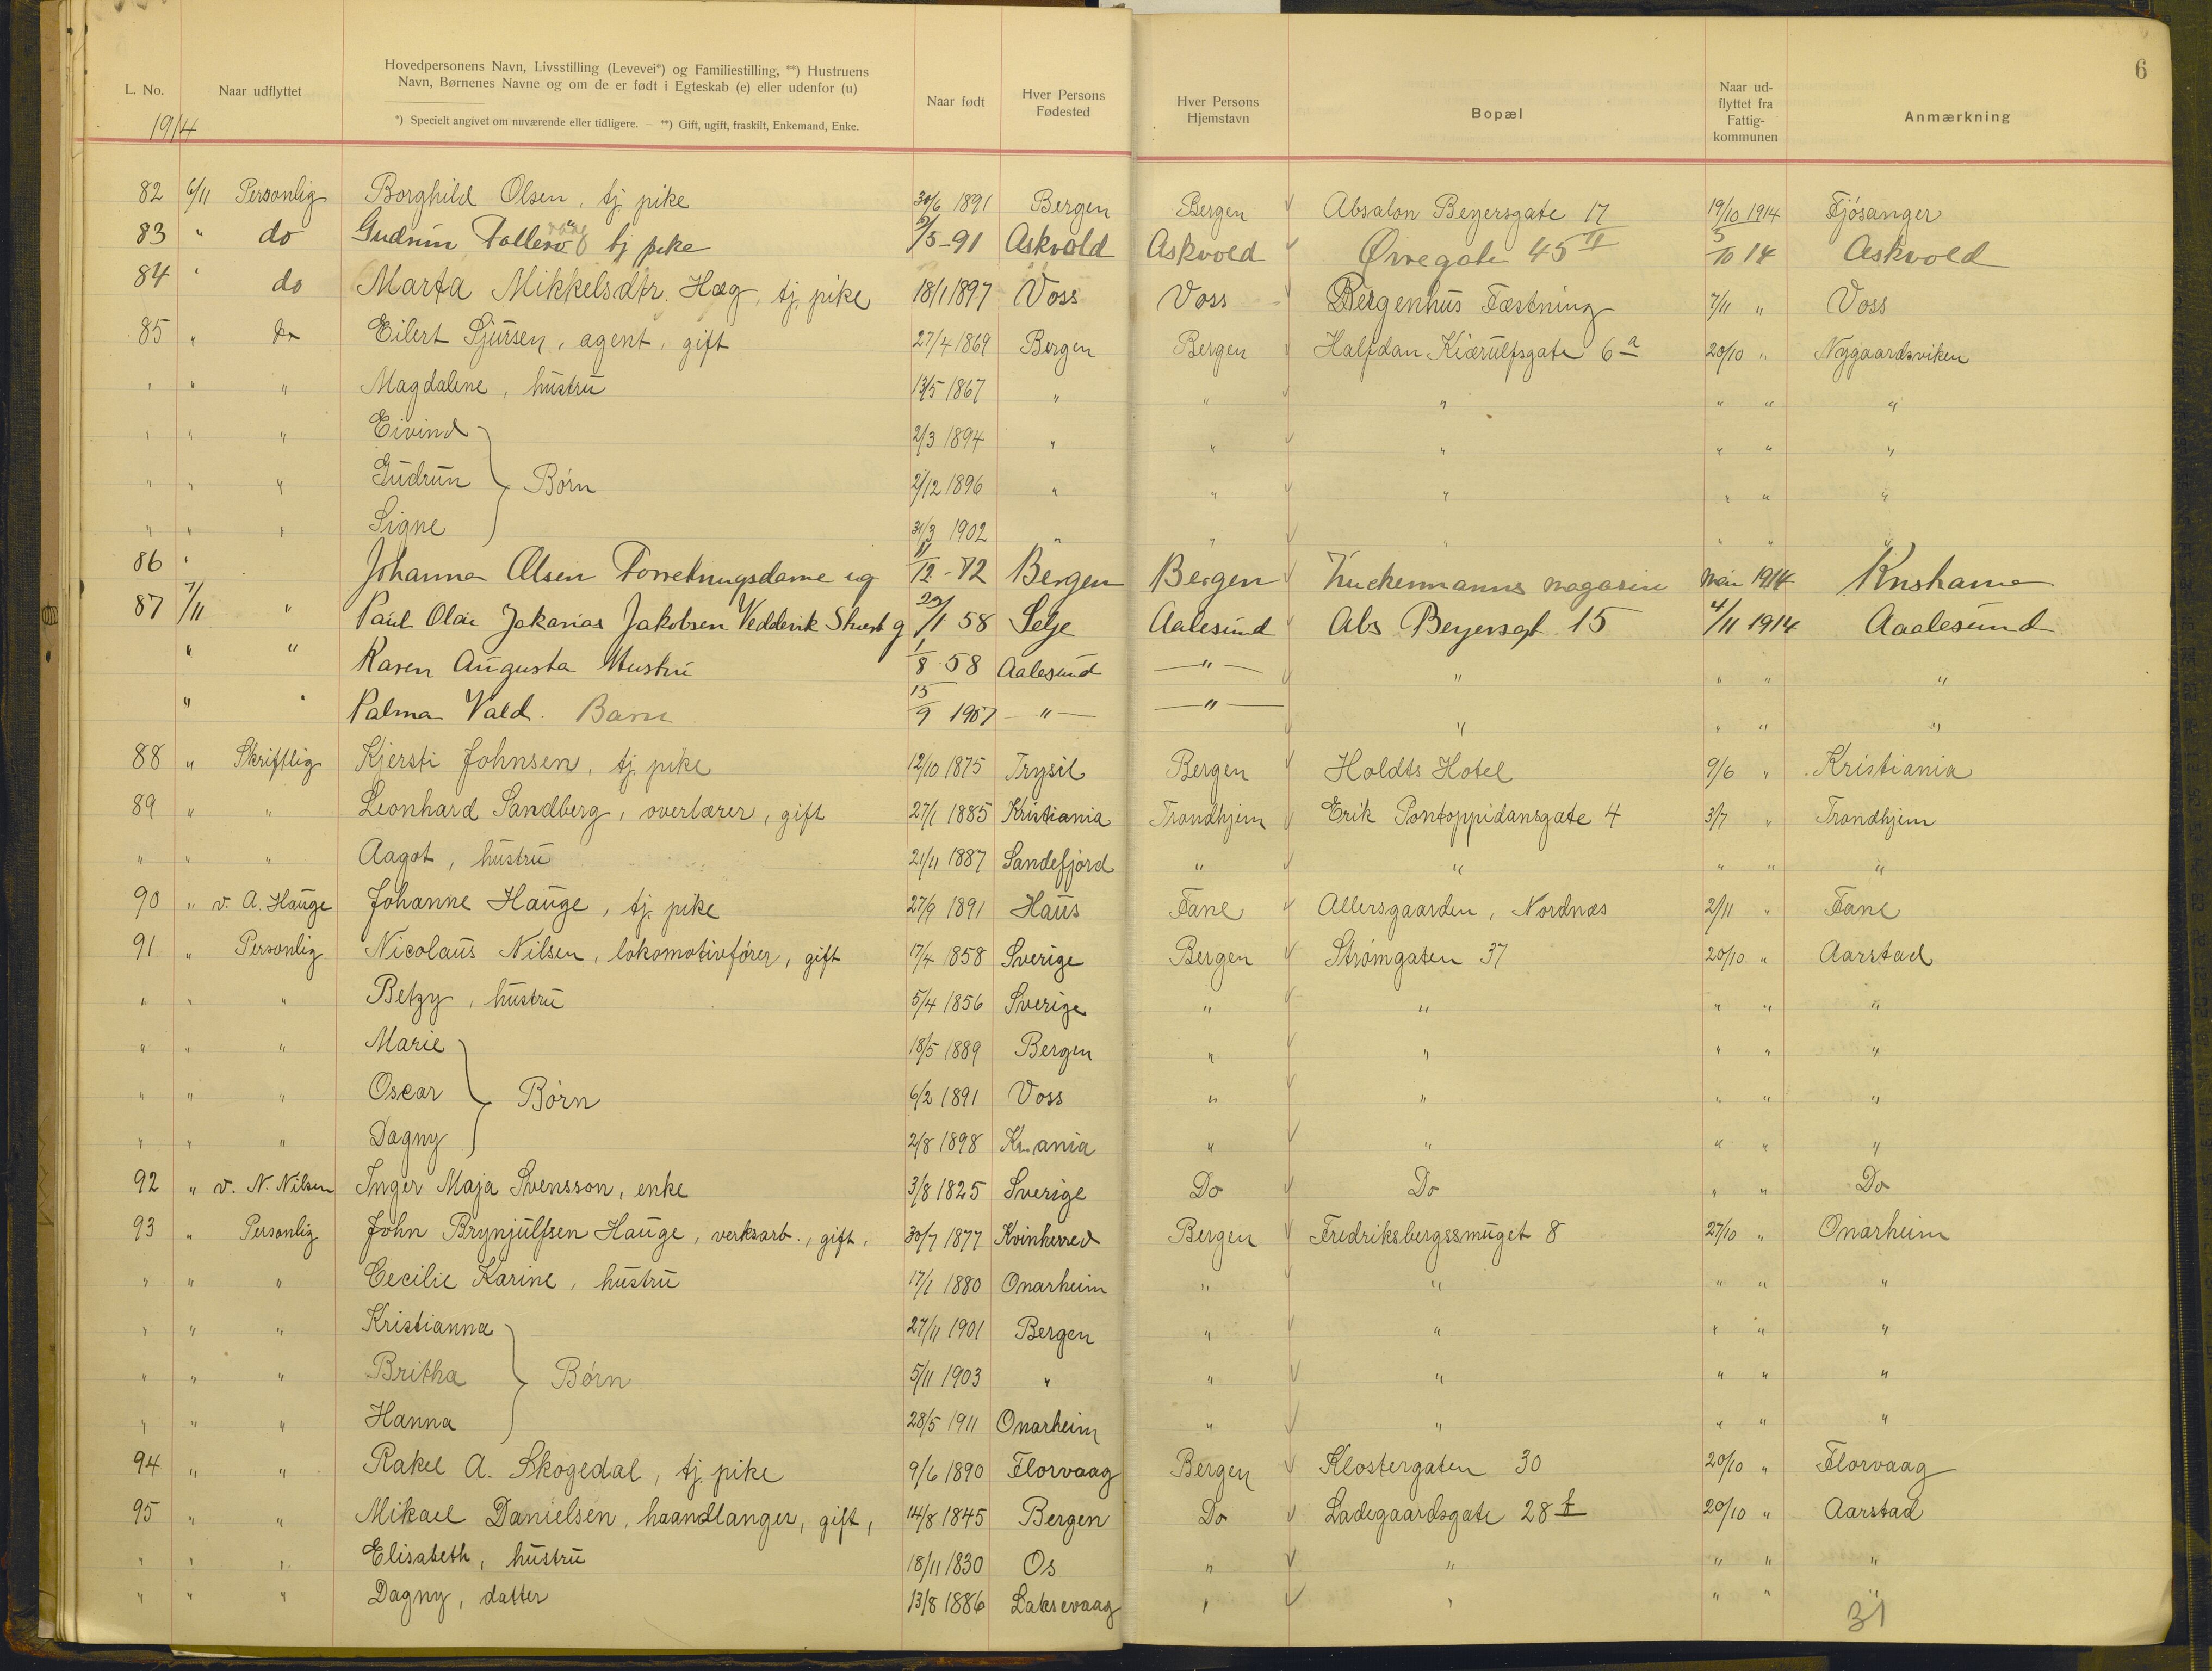 6
L. No. Naar udflyttet Hovedpersonens Navn, Livsstilling (Levevei*) og Familiestilling, **) Hustruens Navn, Børnenes Navne og om de er født i Egteskab (e) eller udenfor (u) Naar født Hver Persons Fødested Hver Persons Hjemstavn Bopæl Naar ud-flyttet fra Fattig-kommunen Anmærkning
*) Specielt angivet om nuværende eller tidligere. — **) Gift, ugift, fraskilt, Enkemand, Enke.
1914
82 6/11 Personlig Borghild Olsen, tj. pike 30/6 1891 Bergen Bergen Absalon Beyersgate 17 19/10 1914 Fjøsanger
83 " do Gudrun tj pike /5-91 Askvold Askvold Øvregate 45 II 5/10 14 Askvold
84 " do Marta Mikkelsdtr. Hæg, tj. pike 18/1 1897 Voss Voss Bergenhus Fæstning 7/11 " Voss
85 " do Eilert Sjursen, agent, gift 27/4 1869 Bergen Bergen Halfdan Kiærulfsgate 6 a 20/10 " Nygaardsviken
" " " Magdalene, hustru 13/5 1867 " " " " " "
" " " Eivind 2/3 1894 " " " " " "
" " " Gudrun Børn 2/12 1896 " " " " " "
" " " Signe 31/3 1902 " " " " " "
86 " Johanna Olsen Forretningsdame ug 11/12-72 Bergen Bergen magasin mai 1914
87 7/11 " Paul Olai Jakarias Jakobsen g 29/1 58 Selje Aalesund Abs Beyersgt 15 4/11 1914 Aaalesund
" " Karen Augusta Hustru 1/8 58 Aalesund — " — " " " "
" " Palma Vald. Barn 15/9 1907 — " — — " — " " " "
88 " Skriftlig Kjersti Johnsen, tj. pike 12/10 1875 Trysil Bergen Holdts Hotel 9/6 " Kristiania
89 " " Leonhard Sandberg, overlærer, gift 27/1 1885 Kristiania Trondhjem Erik Pontoppidansgate 4 3/7 " Trondhjem
" " " Aagot, hustru 21/11 1887 Sandefjord " " " " "
90 " v. A. Hauge Johanne Hauge, tj. pike 27/9 1891 Haus Fane Allersgaarden, Nordnæs 2/11 " Fane
91 " Personlig Nicolaus Nilsen, lokomotivfører, gift 17/4 1858 Sverige Bergen Strømgaten 37 20/10 " Aarstad
" " " Betzy, hustru 5/4 1856 Sverige " " " " "
" " " Marie 18/5 1889 Bergen " " " " "
" " " Oscar Børn 6/2 1891 Voss " " " " "
" " " Dagny 2/8 1898 Kr.ania " " " " "
92 " v. N. Nilsen Inger Maja Svensson, enke 3/8 1825 Sverige Do Do " " Do
93 " Personlig John Brynjulfsen Hauge, verksarb., gift. 30/7 1877 Kvinherred Bergen Fredriksbergssmuget 8 27/10 " Onarheim
" " " Cecilie Karine, hustru 17/1 1880 Onarheim " " " " "
" " " Kristianna 27/11 1901 Bergen " " " " "
" " " Britha Børn 5/11 1903 " " " " " "
" " " Hanna 28/5 1911 Onarheim " " " " "
94 " " Rakel A. Skogedal, tj. pike 9/6 1890 Florvaag Bergen Klostergaten 30 20/10 " Florvaag
95 " " Mikael Danielsen, haandlanger, gift, 14/8 1845 Bergen Do Ladegaardsgate 28 f 20/10 " Aarstad
" " " Elisabeth, hustru 18/11 1830 Os " " " " "
" " " Dagny, datter 13/8 1886 Laksevaag " " " " "
31